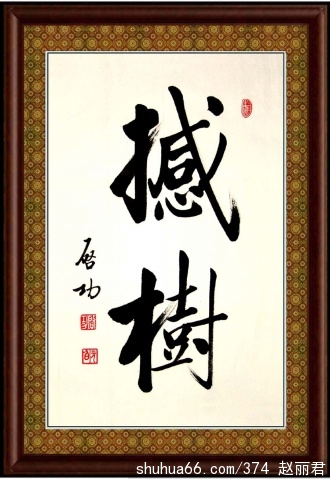 撼樹
启功
shuhua66.com/374 赵丽君